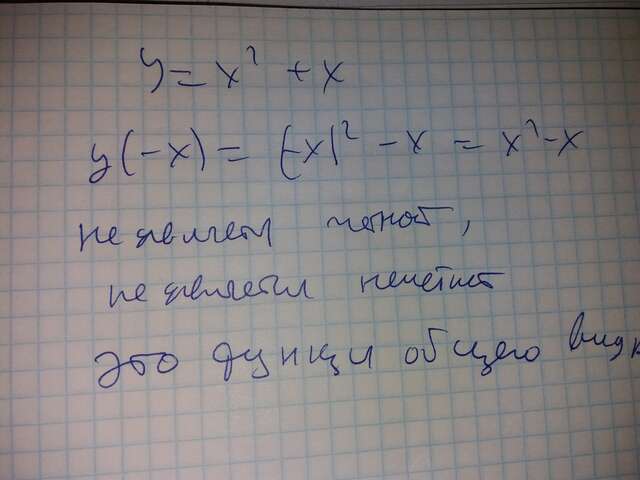 y = x² + x
y(-x) = (-x)² - x = x² - x
не является четной,
не является нечетной
Это функция общего вида